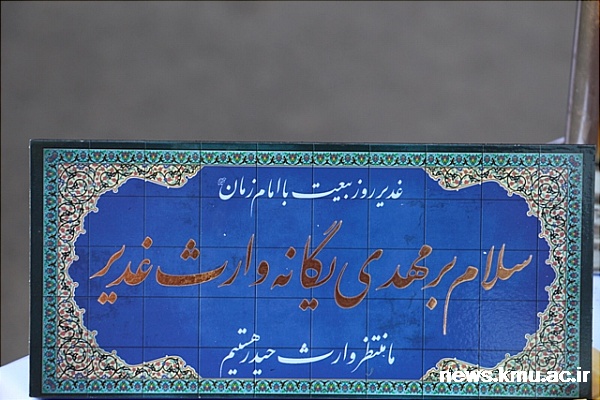 غدیر روز بیعت با امام زمان
سلام بر مهدی یگانه وارث غدیر
ما منتظر وارث حیدر هستیم
news.kmu.ac.ir